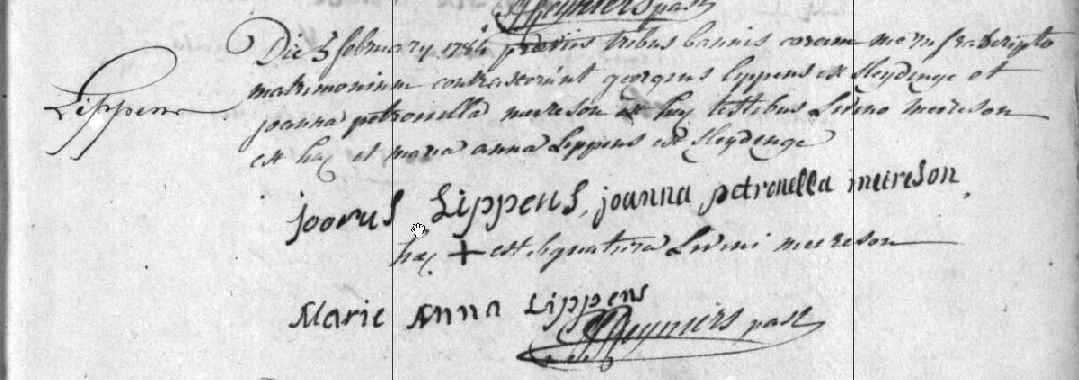 Reyniers past
Die 5 february 1784 præviis tribus bannis coram me infrascripto
Lippens
matrimonium contraxerunt georgius lippens ex sleydinge et
joanna petronella meireson ex hac testibus Livino meireson
ex hac et maria anna Lippens ex sleydinge
joorus Lippens, joanna petronella meireson
hac + est signatura Livini meireson
Marie Anna Lippens
Reyniers past